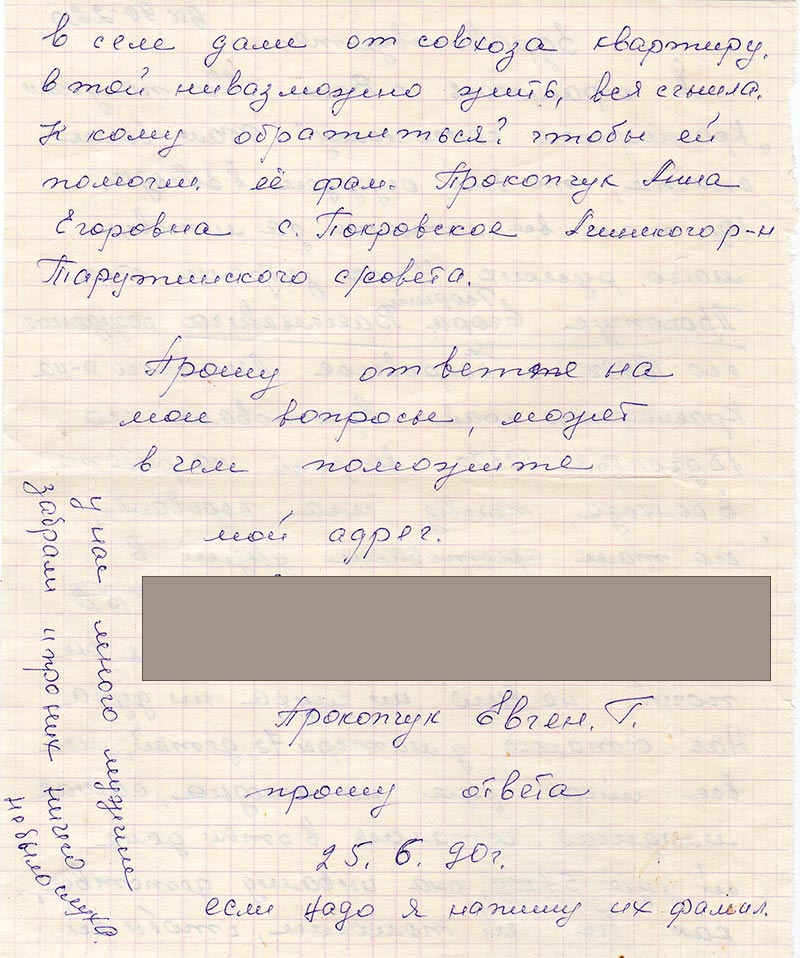 в селе дали от совхоза квартиру.
в той нивазможно жить, вся сгнила.
К кому обратиться? чтобы ей
помогли. её фам. Прокопчук Анна
Егоровна с. Покровское Ачинского р-н
Тарутинского с/совета.
Прошу ответте на
мои вопросы, может
в чем поможите
мой адрес.
Прокопчук Евген. Г.
прошу ответа
25. 6. 90 г.
если надо я напишу их фамил.
у нас много мужчин
забрали и про них ничего
не было слуха.